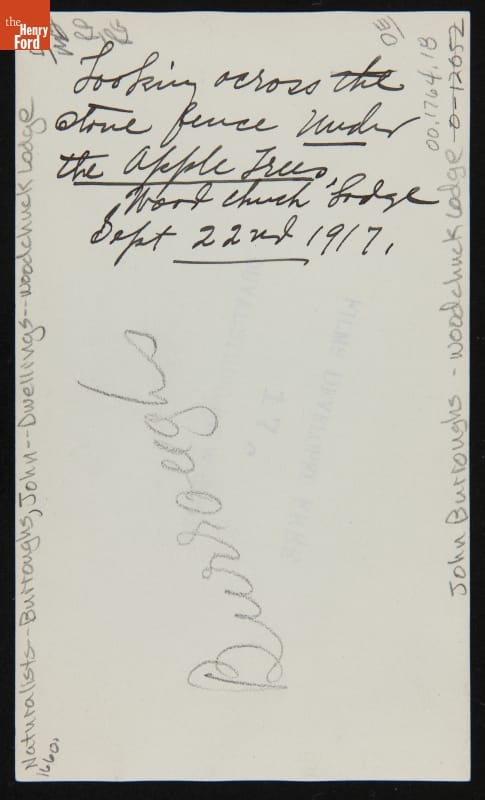 the
Henry
Ford
Looking across the
stone fence Under
the Apple Trees
Woodchuck Lodge
Sept 22nd 1917.
Burroughs
Naturalists--Burroughs, John--Dwellings--Woodchuck Lodge
1660.
John Burroughs - Woodchuck Lodge
00.1764.18
0-12052